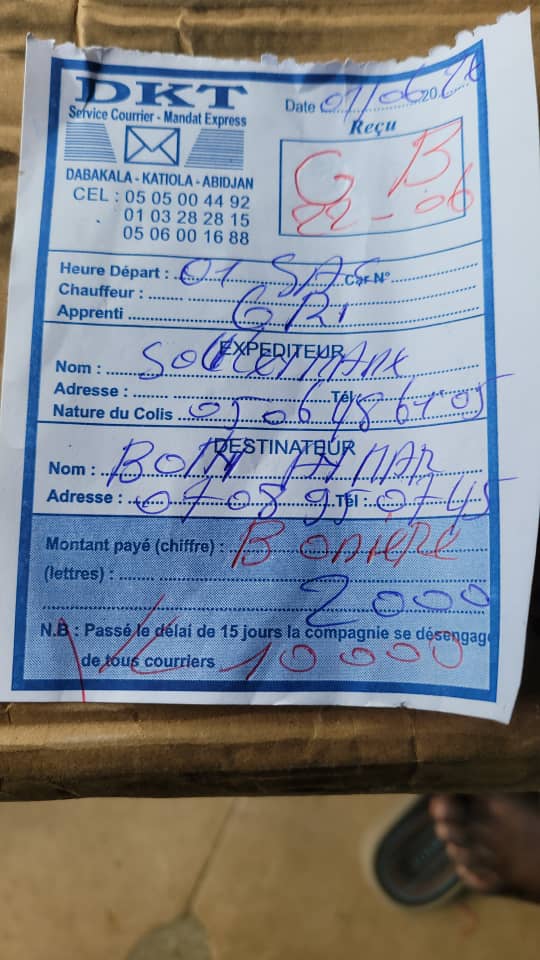 DKT
Service Courrier - Mandat Express
DABAKALA - KATIOLA - ABIDJAN
CEL : 05 05 00 44 92
01 03 28 28 15
05 06 00 16 88
Date 01/06 20 26
Reçu
G B
22-06
Heure Départ : 01 SAC Car N°
Chauffeur :
Apprenti GBI
EXPEDITEUR
Nom : Souleymane
Adresse : Tél
Nature du Colis 05 06 48 61 05
DESTINATEUR
Nom : BOTH AYMAR
Adresse : 07 08 99 Tél : 07 45
Montant payé (chiffre) : Bonière
(lettres) :
2000
N.B : Passé le délai de 15 jours la compagnie se désengage
de tous courriers VL 10 000